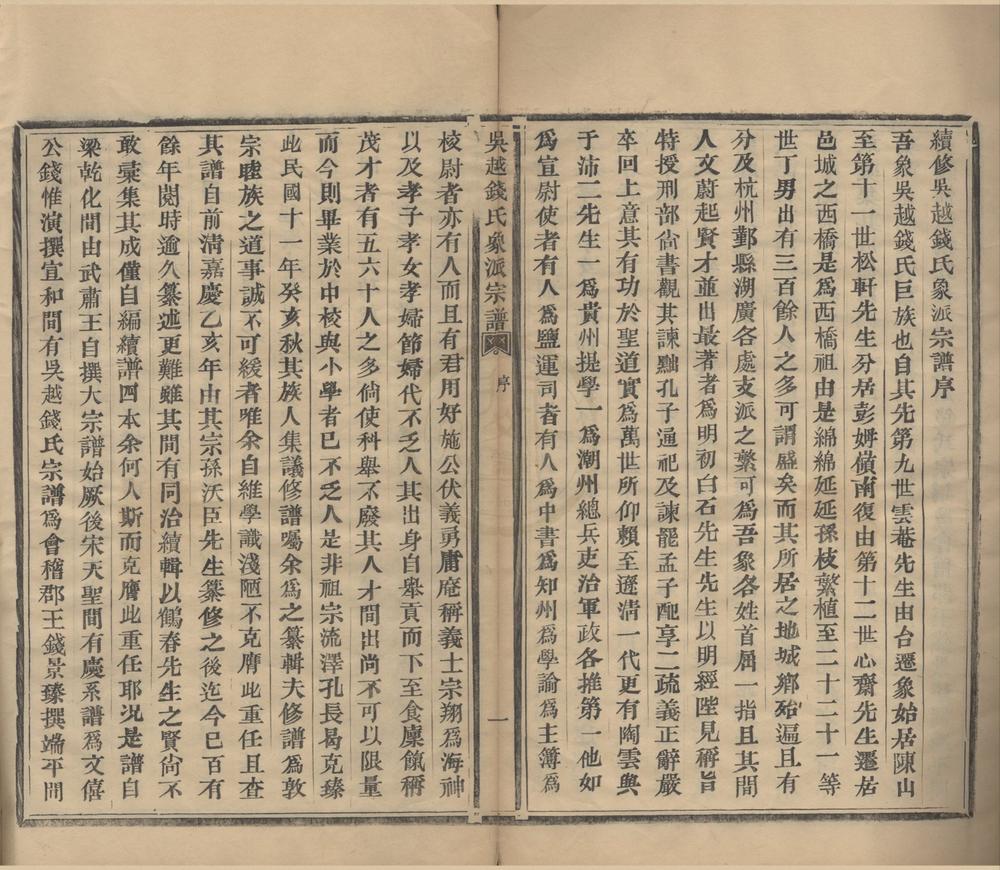 續修吳越錢氏象派宗譜序
吾象吳越錢氏巨族也自其先第九世雲菴先生由台遷象始居陳山
至第十一世松軒先生分居彭姆嶺南復由第十二世心齋先生遷居
邑城之西橋是爲西橋祖由是綿綿延延孫枝繁植至二十二十一等
世丁男出有三百餘人之多可謂盛矣而其所居之地城鄉殆逼且有
分及杭州鄞縣湖廣各處支派之繁可爲吾象各姓首屈一指且其間
人文蔚起賢才並出最著者爲明初白石先生先生以明經陛見稱旨
特授刑部尙書觀其諫黜孔子通祀及諫罷孟子配享二疏義正辭嚴
卒回上意其有功於聖道實爲萬世所仰賴至遜淸一代更有陶雲與
于沛二先生一爲黃州提學一爲潮州總兵吏治軍政各推第一他如
爲宣尉使者有人爲鹽運司者有人爲中書爲知州爲學諭爲主簿爲
吳越錢氏象派宗譜 序 一
校尉者亦有人而且有君用好施公伏義勇庸庵稱義士宗翔爲海神
以及孝子孝女孝婦節婦代不乏人其出身自舉貢而下至食廩餼稱
茂才者有五六十人之多倘使科舉不廢其人才間出尚不可以限量
而今則畢業於中校與小學者已不乏人是非祖宗流澤孔長曷克臻
此民國十一年癸亥秋其族人集議修譜囑余爲之纂輯夫修譜爲敦
宗睦族之道事誠不可緩者唯余自維學識淺陋不克膺此重任且查
其譜自前淸嘉慶乙亥年由其宗孫沃臣先生纂修之後迄今已百有
餘年閱時逾久纂述更難雖其間有同治續輯以鶴春先生之賢尙不
敢彙集其成僅自編續譜四本余何人斯而克膺此重任耶况是譜自
梁乾化間由武肅王自撰大宗譜始厥後宋天聖間有慶系譜爲文僖
公錢惟演撰宣和間有吳越錢氏宗譜爲會稽郡王錢景臻撰端平間